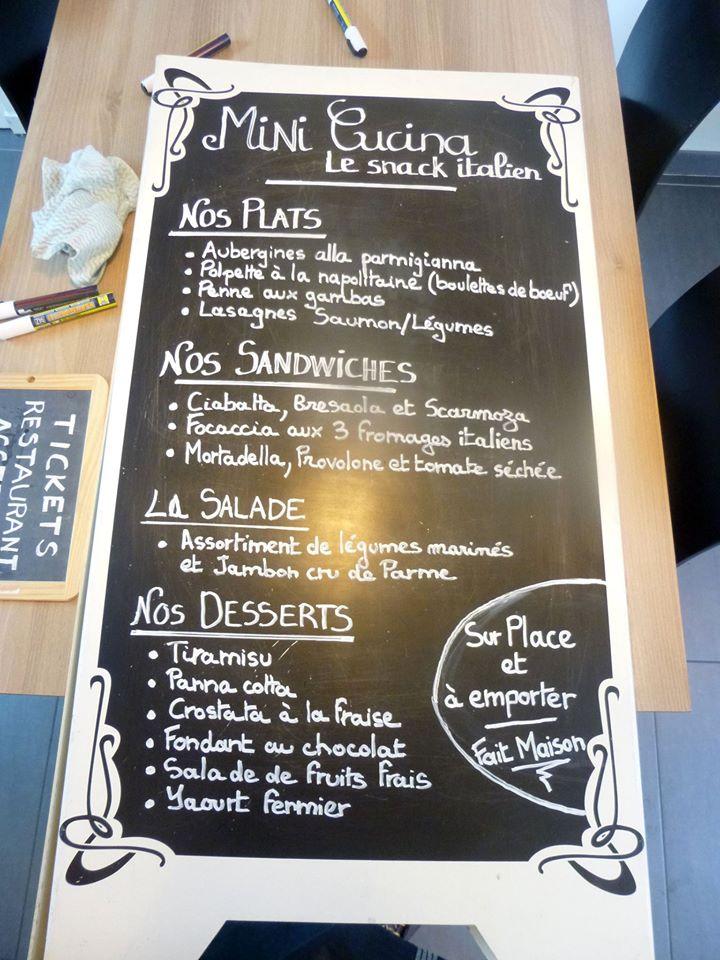 Mini Cucina
Le snack italien
Nos Plats
• Aubergines alla parmigianna
• Polpette à la napolitaine (boulettes de boeuf)
• Penne aux gambas
• Lasagnes Saumon/Légumes
Nos Sandwiches
• Ciabatta, Bresaola et Scarmoza
• Focaccia aux 3 fromages italiens
• Mortadella, Provolone et tomate séchée
La Salade
• Assortiment de légumes marinés
et Jambon cru de Parme
Nos Desserts
• Tiramisu
• Panna cotta
• Crostata à la fraise
• Fondant au chocolat
• Salade de fruits frais
• Yaourt fermier
Sur Place
et
à emporter
Fait Maison
TICKETS
RESTAURANT